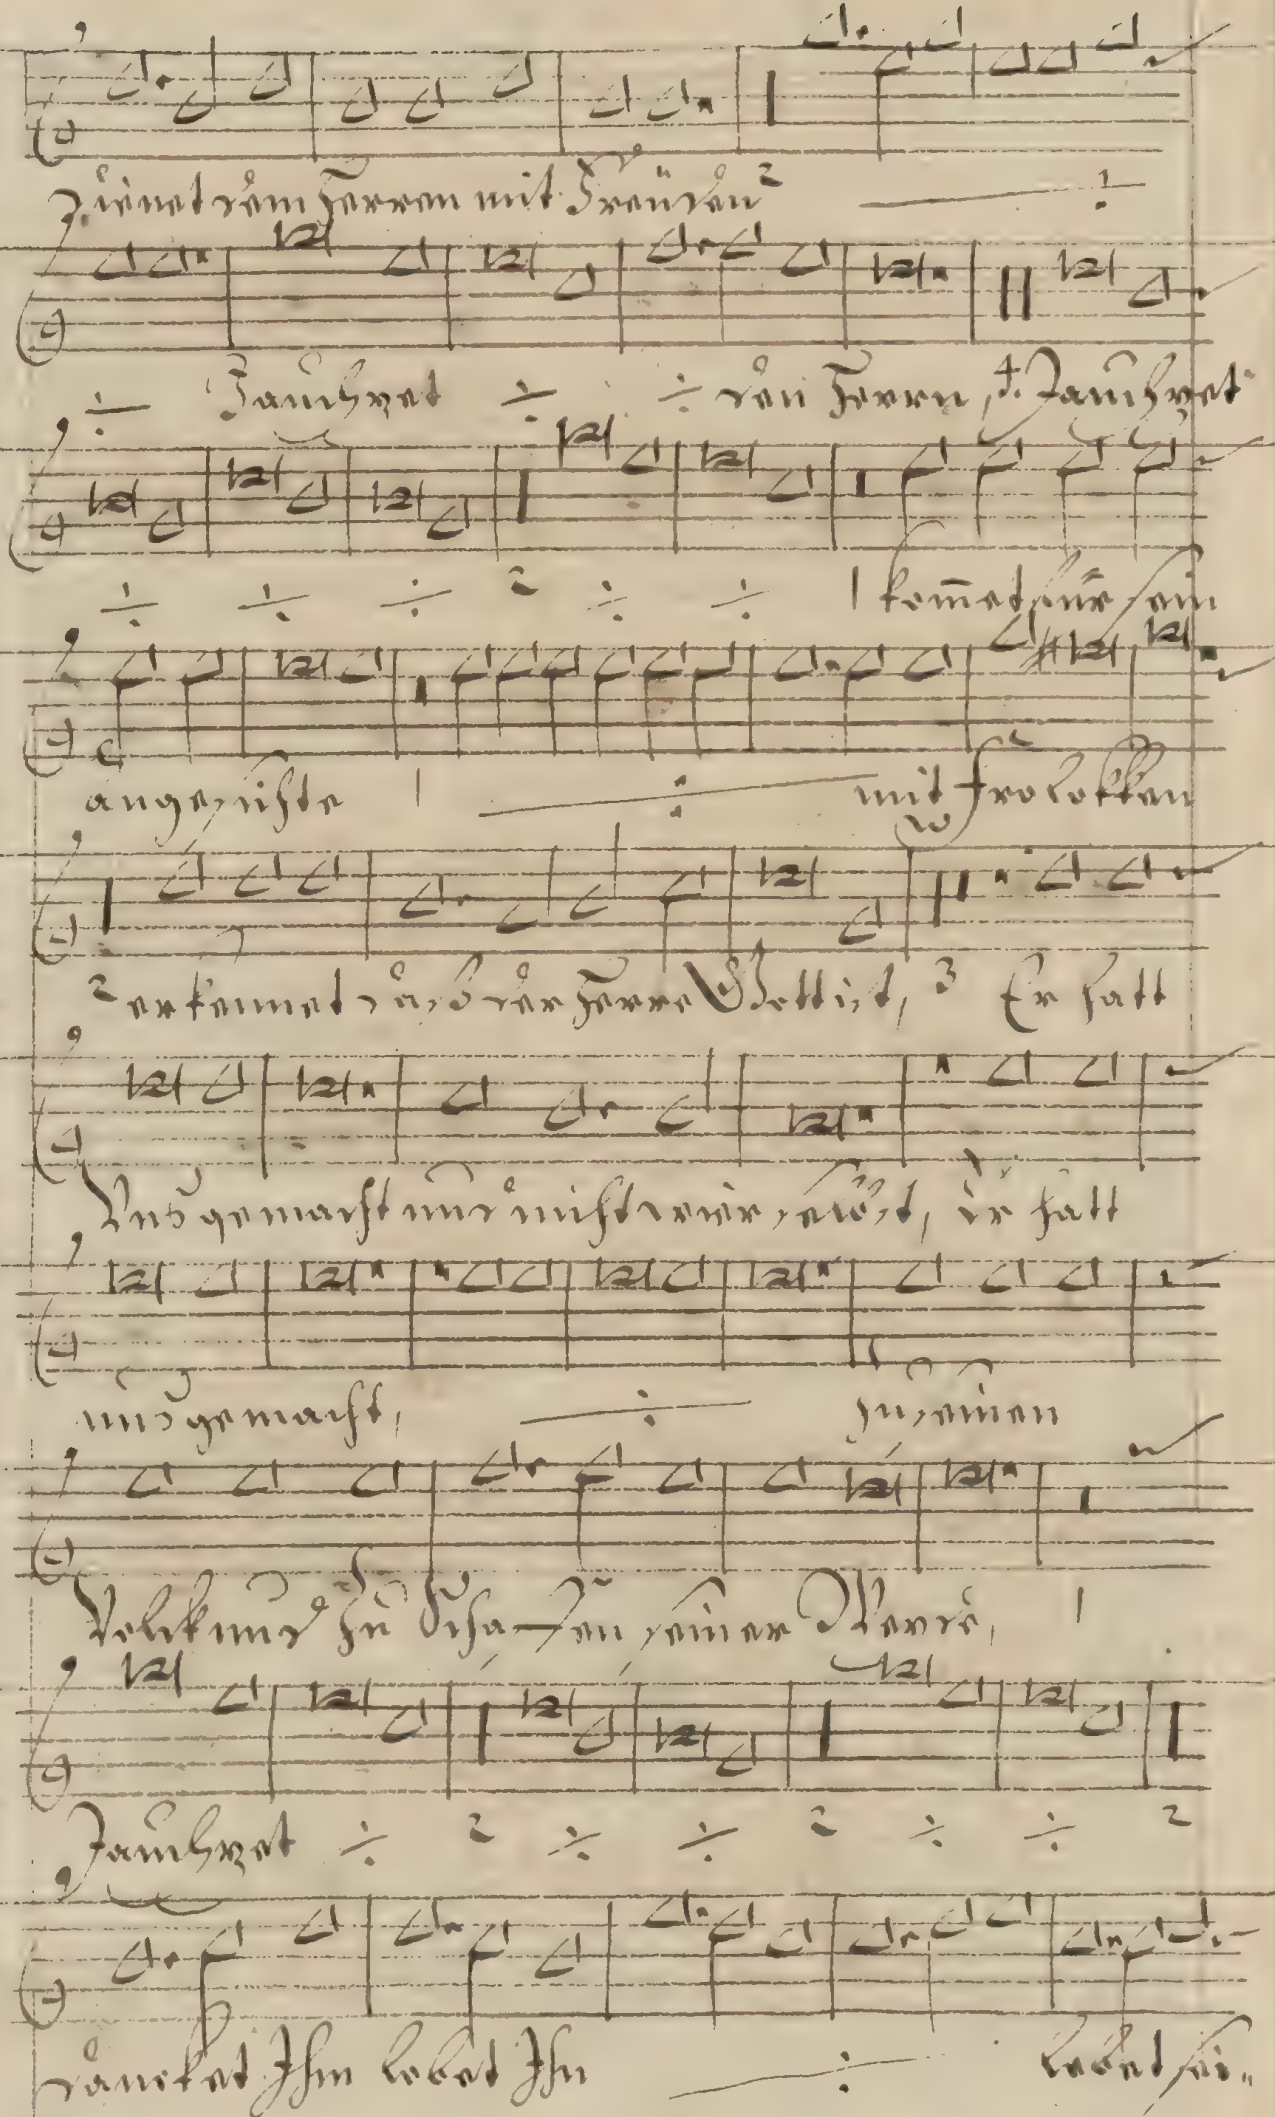 dienet dem Herren mit Freuden 2 ÷
÷ Jauchzet ÷ ÷ den Herrn, 4. Jauchzet
÷ ÷ ÷ 2 ÷ ÷ 1 kom̅et für sein
angesichte 1 ÷ mit Frolokken
2 erkennet daß der Herre Gott ist, 3 Er hatt
Uns gemacht und nicht wier selbst, Er hatt
uns gemacht, ÷ zu seinen
Volck und zu Schaffen seiner Weyde, 1
Jauchzet ÷ 2 ÷ ÷ 2 ÷ ÷ 2
dancket Ihm lobet Ihn ÷ lobet sei=